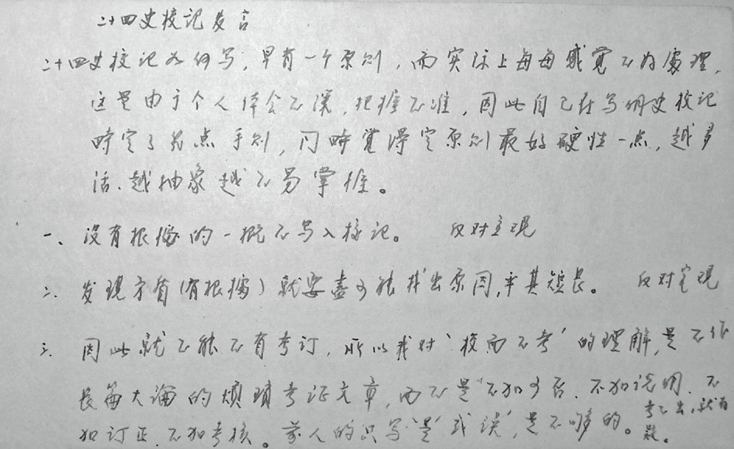 二十四史校记发言
二十四史校记如何写，早有一个原则，而实际上每每感觉不好处理，
这是由于个人体会不深，把握不准，因此自己在写明史校记
时定了几点手则，同时觉得定原则最好硬性一点，越多
活、越抽象越不易掌握。
一、没有根据的一概不写入校记。 反对主观
二、发现矛盾(有根据)就要尽可能找出原因，平其短长。 反对客观
三、因此就不能不有考订，所以我对“校而不考”的理解，是不作
长篇大论的烦琐考证文章，而不是不加可否、不加说明、不
加订正、不加考核。前人的只写“是”或“误”，是不够的。考不出，就存疑。